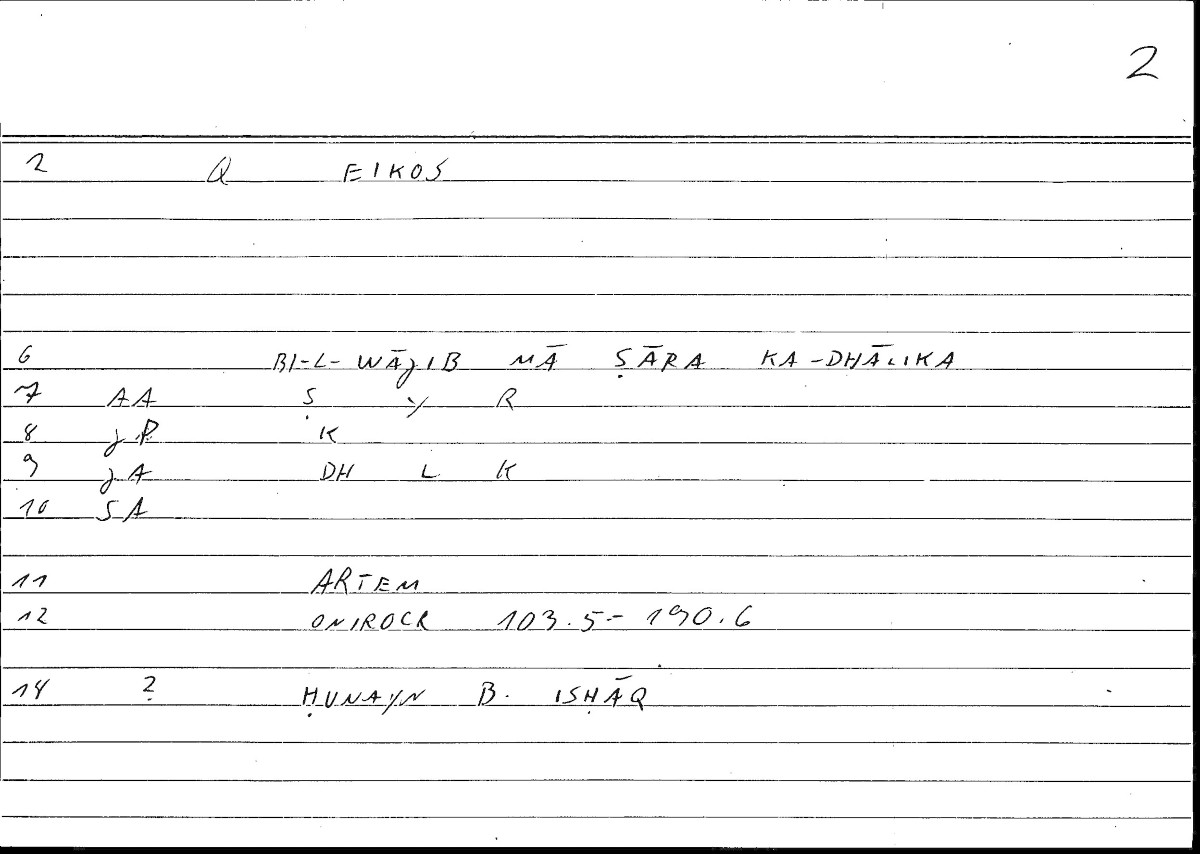 2
2 Q EIKOS
6 BI-L-WĀJIB MĀ ṢĀRA KA-DHĀLIKA
7 AA Ṣ Y R
8 JP K
9 JA DH L K
10 SA
11 ARTEM
12 ONIROCR 103.5-190.6
14 2 ḤUNAYN B. ISḤĀQ